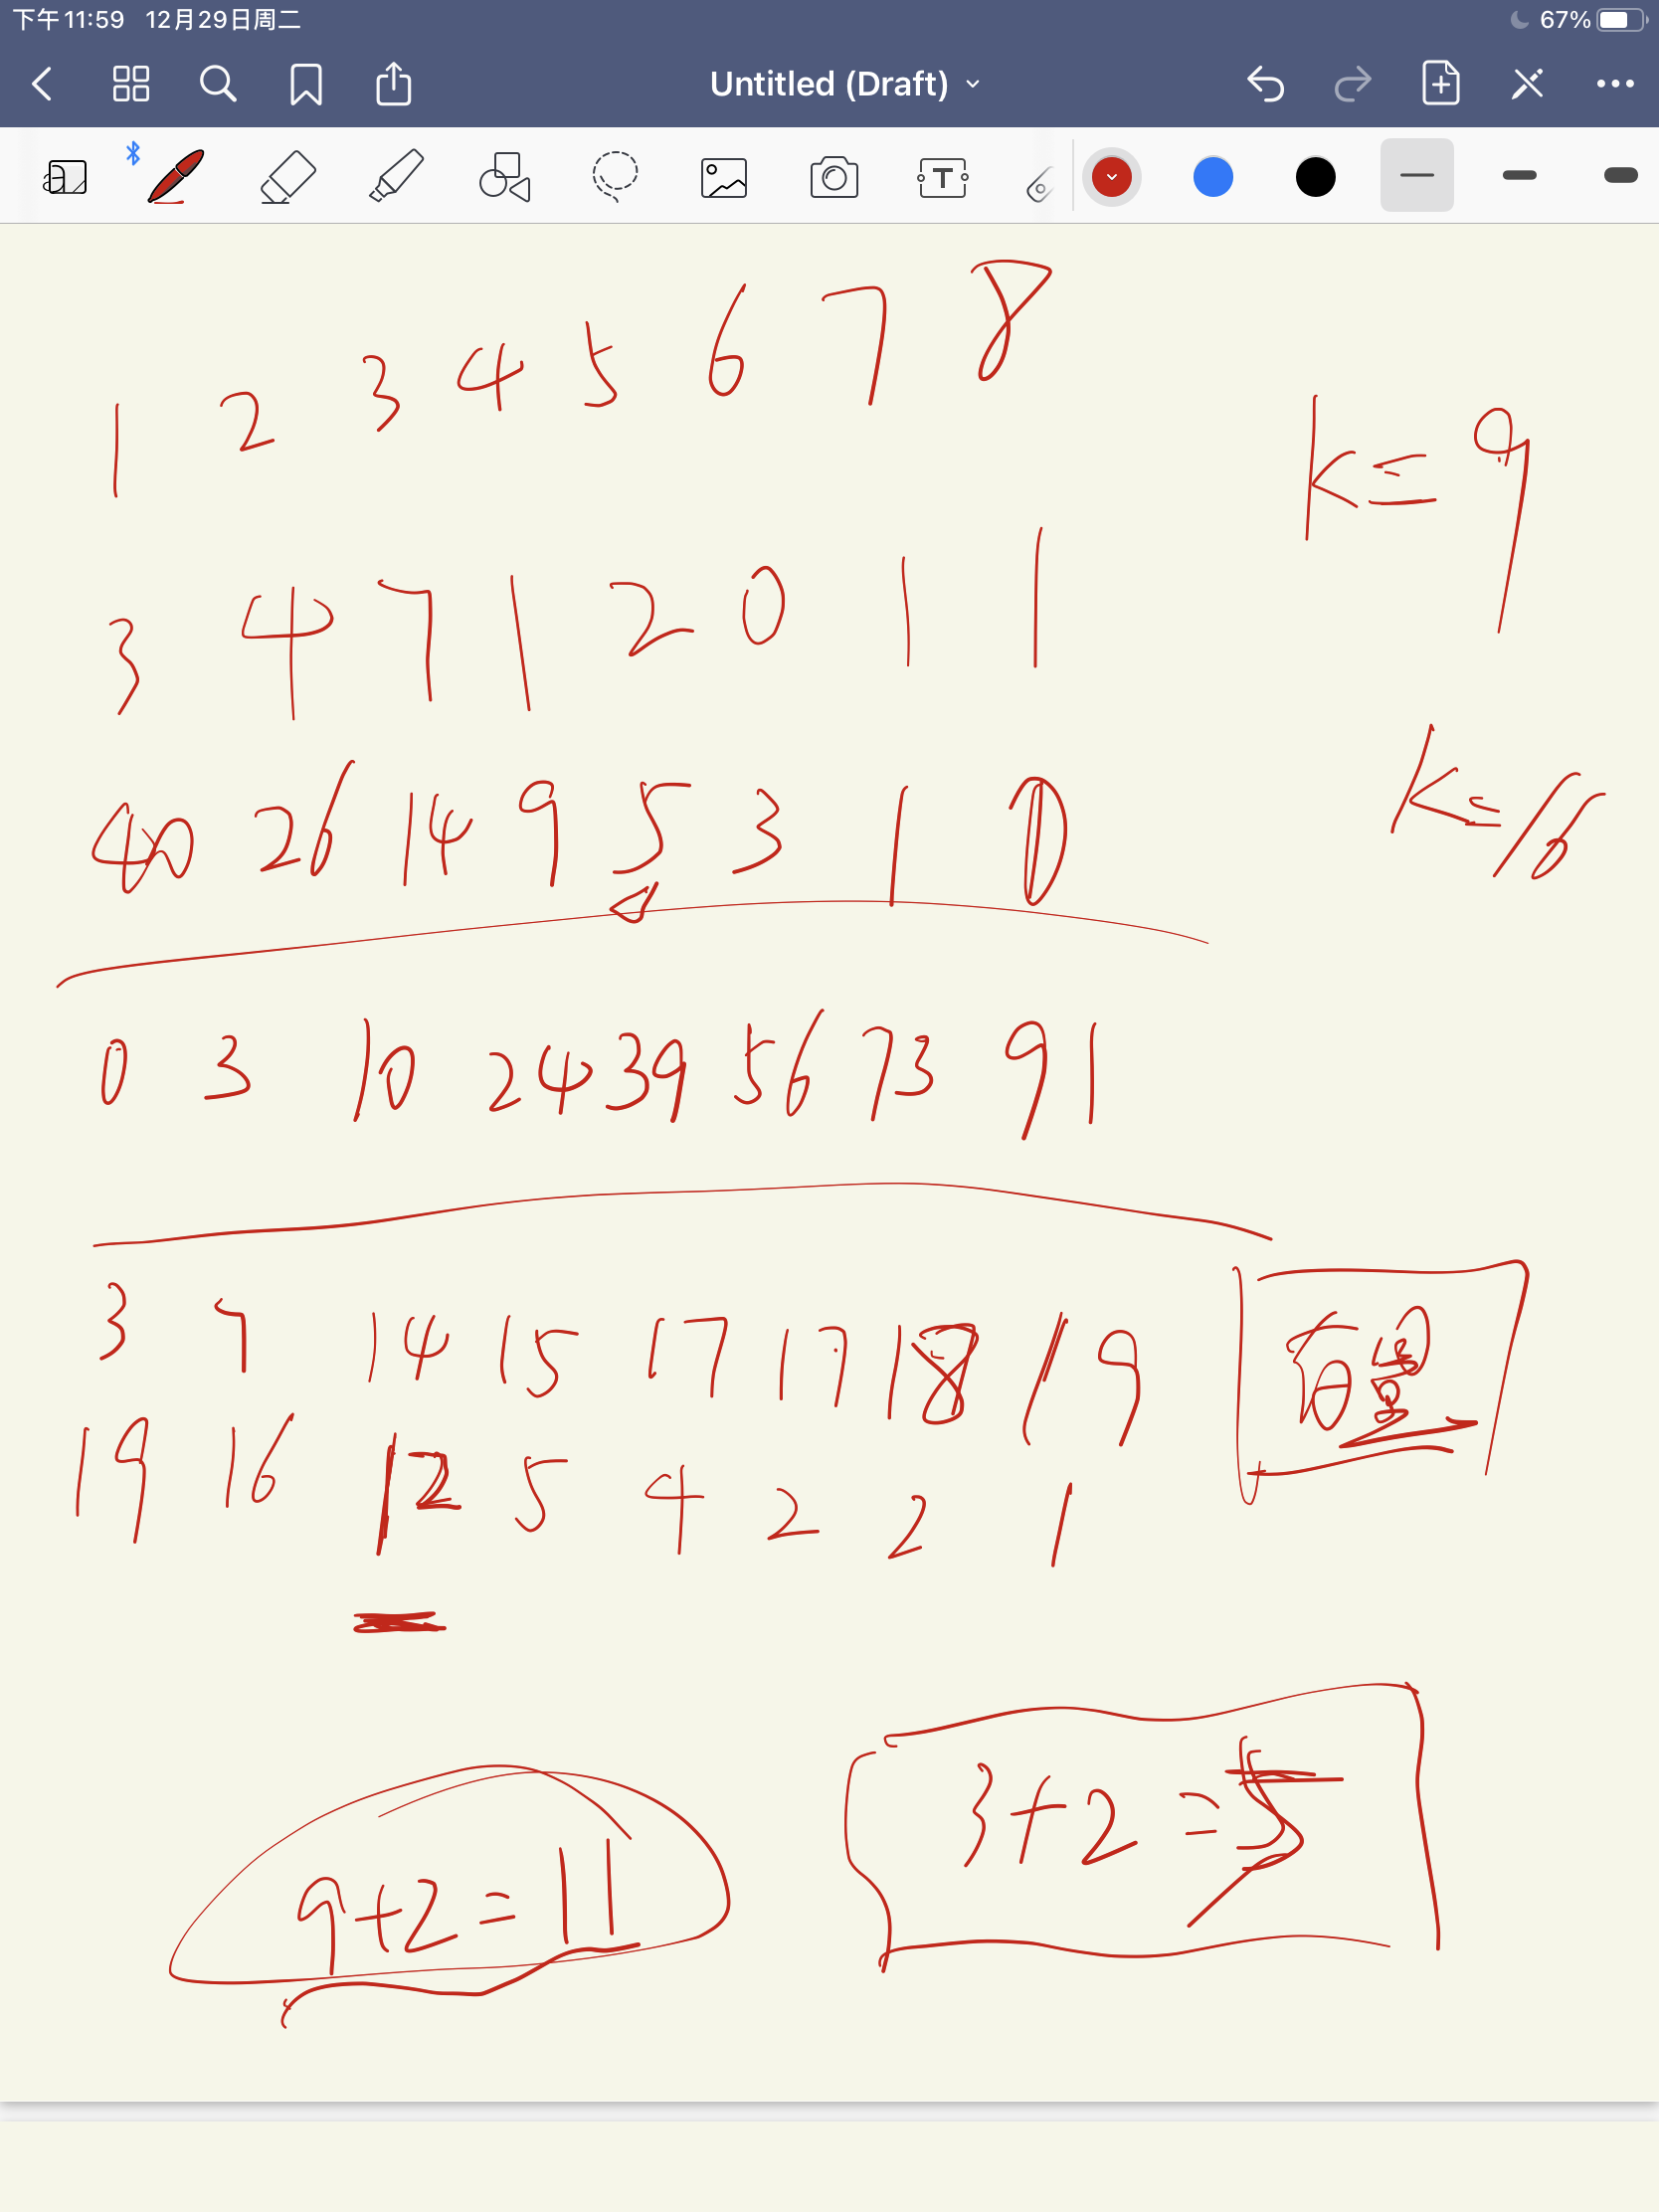 下午11:59 12月29日周二 67%
Untitled (Draft)
T
1 2 3 4 5 6 7 8
k=9
3 4 7 1 2 0 1 1
k=16
40 26 14 9 5 3 1 0
0 3 10 24 39 56 73 91
3 7 14 15 17 17 18 19
19 16 12 5 4 2 2 1
3+2=5
9+2=11